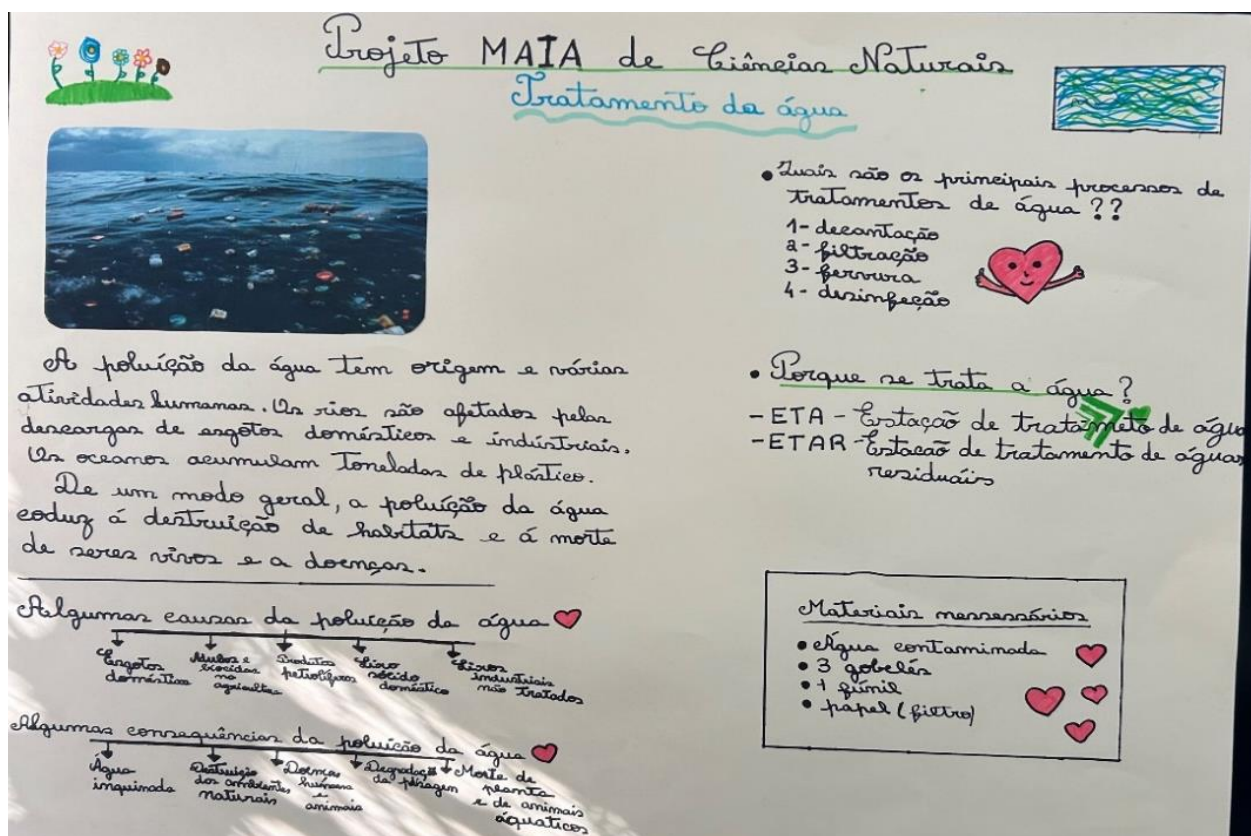 Projeto MAIA de Ciências Naturais
Tratamento da água
A poluíção da água tem origem e várias
atividades humanas. Os rios são afetados pelas
descargas de esgotos domésticos e indústriais.
Os oceanos acumulam toneladas de plástico.
De um modo geral, a poluíção da água
coduz á destruição de habitats e á morte
de seres vivos e a doenças.
Algumas causas da poluição da água
Esgotos
doméstico
Adubos e
na
agricultura
Produtos
petrolíferos
Lixo
sócido
doméstico
Lixos
industriais
não tratados
Algumas consequências da poluição da água
Água
inquinada
Destruição
dos ambientes
naturais
Doenças
humana
e
animais
Degradação
da
Morte de
planta
e de animais
áquaticos
• Quais são os principais processos de
tratamentos de água ??
1- decantação
2- filtração
3- fervura
4- desinfeção
• Porque se trata a água ?
- ETA - Estação de tratameto de água
- ETAR - Estacão de tratamento de águas
residuáis
Materiais nessessários
• Água contaminada
• 3 gobelés
• 1 fúnil
• papel (filtro)